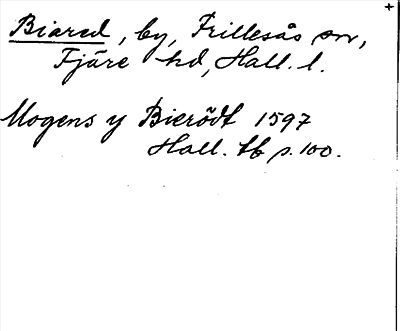 Biared, by, Frillesås sn,
Fjäre hd, Hall. l.
Mogens y Bierödt 1597
Hall. tb p. 100.